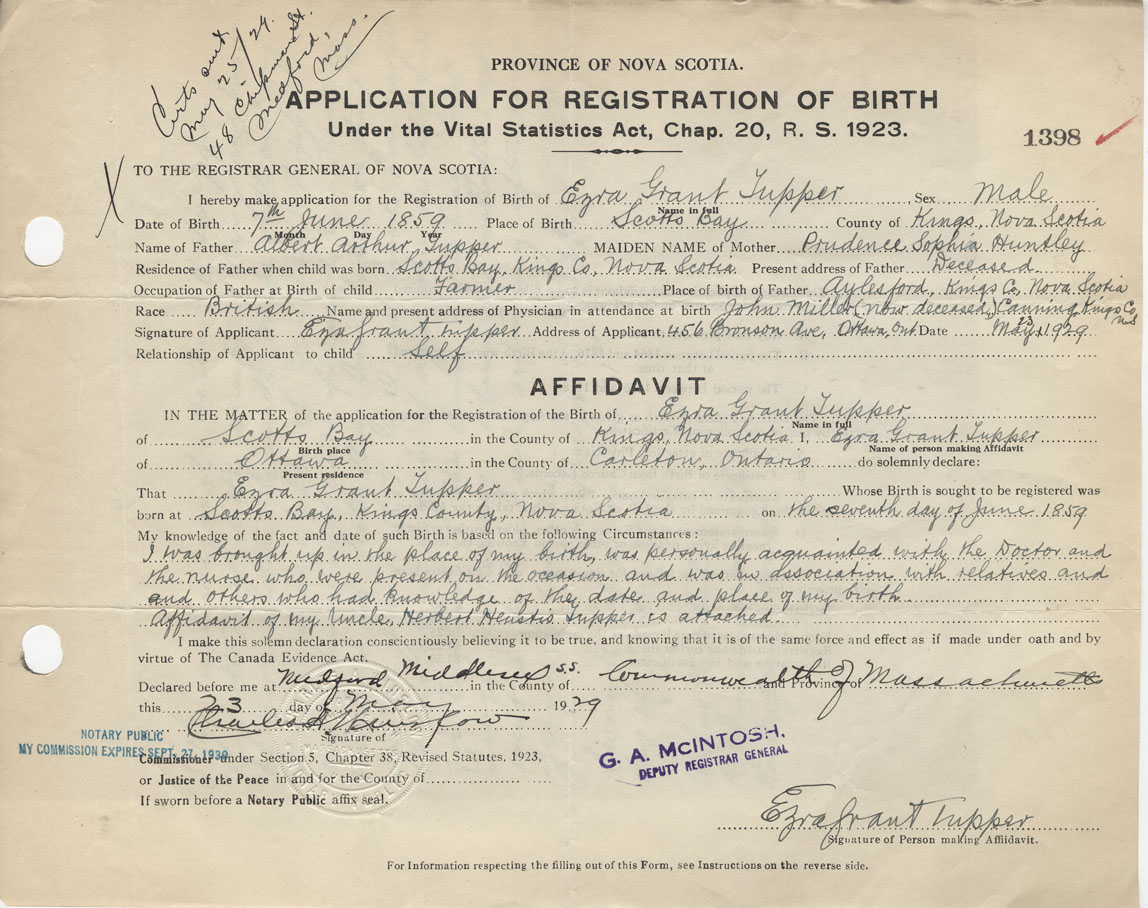 Certs sent
May 25/29.
48 Chipman St.
Medford,
Mass.
PROVINCE OF NOVA SCOTIA.
APPLICATION FOR REGISTRATION OF BIRTH
Under the Vital Statistics Act, Chap. 20, R. S. 1923.
1398
X TO THE REGISTRAR GENERAL OF NOVA SCOTIA:
I hereby make application for the Registration of Birth of Ezra Grant Tupper Sex Male
Name in full
Date of Birth 7th June 1859 Place of Birth Scotts Bay County of Kings, Nova Scotia
Month Day Year
Name of Father Albert Arthur Tupper MAIDEN NAME of Mother Prudence Sophia Huntley
Residence of Father when child was born Scotts Bay, Kings Co, Nova Scotia Present address of Father Deceased
Occupation of Father at Birth of child Farmer Place of birth of Father Aylesford, Kings Co, Nova Scotia
Race British Name and present address of Physician in attendance at birth John Miller (now deceased) Canning, Kings Co, N.S.
Signature of Applicant Ezra Grant Tupper Address of Applicant 456 Bronson Ave, Ottawa, Ont Date May 23 1929
Relationship of Applicant to child Self
AFFIDAVIT
IN THE MATTER of the application for the Registration of the Birth of Ezra Grant Tupper
Name in full
of Scotts Bay in the County of Kings, Nova Scotia I, Ezra Grant Tupper
Birth place Name of person making Affidavit
of Ottawa in the County of Carleton, Ontario do solemnly declare:
Present residence
That Ezra Grant Tupper Whose Birth is sought to be registered was
born at Scotts Bay, Kings County, Nova Scotia on the seventh day of June 1859
My knowledge of the fact and date of such Birth is based on the following Circumstances:
I was brought up in the place of my birth, was personally acquainted with the Doctor and
the nurse who were present on the occasion and was in association with relatives and
and others who had knowledge of the date and place of my birth
Affidavit of my Uncle, Herbert Heustis Tupper is attached.
I make this solemn declaration conscientiously believing it to be true, and knowing that it is of the same force and effect as if made under oath and by
virtue of The Canada Evidence Act.
Declared before me at Medford Middlesex S.S. in the County of Commonwealth of and Province of Massachusetts
this 23 day of May 1929
Charles
Signature of
NOTARY PUBLIC
MY COMMISSION EXPIRES SEPT. 27, 1930
Commissioner under Section 5, Chapter 38, Revised Statutes, 1923,
or Justice of the Peace in and for the County of
If sworn before a Notary Public affix seal.
G. A. MCINTOSH.
DEPUTY REGISTRAR GENERAL
Ezra Grant Tupper
Signature of Person making Affidavit.
For Information respecting the filling out of this Form, see Instructions on the reverse side.